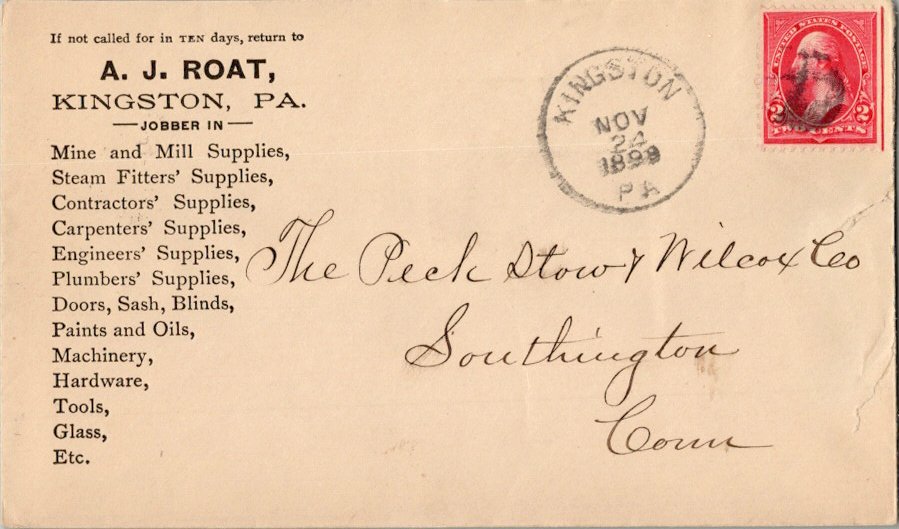 If not called for in TEN days, return to
A. J. ROAT,
KINGSTON, PA.
JOBBER IN
Mine and Mill Supplies,
Steam Fitters' Supplies,
Contractors' Supplies,
Carpenters' Supplies,
Engineers' Supplies,
Plumbers' Supplies,
Doors, Sash, Blinds,
Paints and Oils,
Machinery,
Hardware,
Tools,
Glass,
Etc.
KINGSTON
NOV
24
1899
PA
UNITED STATES POSTAGE
2 2
TWO CENTS
The Peck Stow & Wilcox Co
Southington
Conn